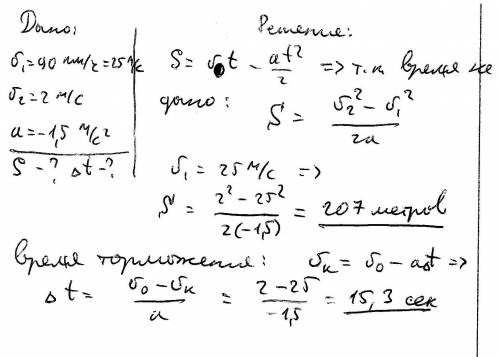 Дано:
υ₁=90 км/ч=25 м/с
υ₂=2 м/с
a=-1,5 м/с²
S-? Δt-?
Решение:
S = υ₀t - at²/2 => т.к время не
дано: S = (υ₂² - υ₁²)/2a
υ₁ = 25 м/с =>
S = (2² - 25²)/2(-1,5) = 207 метров
Время торможения: υₖ = υ₀ - aΔt =>
Δt = (υ₀ - υₖ)/a = (2-25)/-1,5 = 15,3 сек